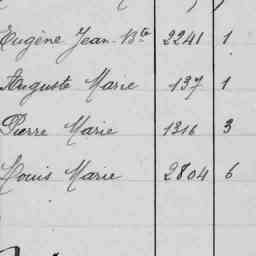 Eugène Jean-Bte 2241 1
Auguste Marie 137 1
Pierre Marie 1316 3
Louis Marie 2804 6